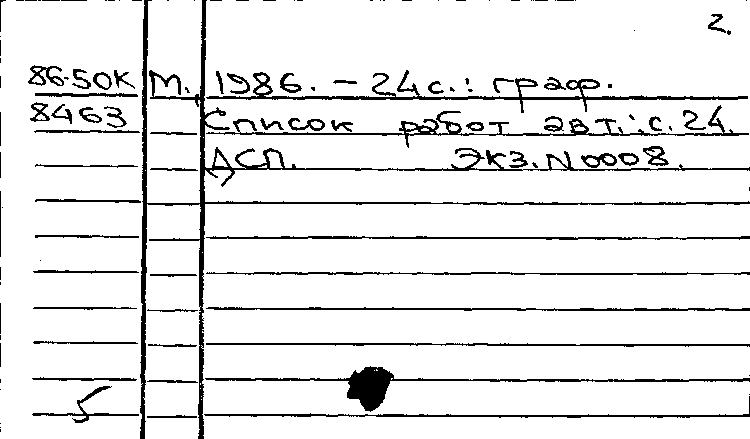 2.
86-50К М., 1986. – 24с.: граф.
8463 Список работ авт.: с. 24.
ДСП. Экз. N 0008.
5